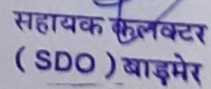 सहायक कलक्टर
( SDO ) बाड़मेर